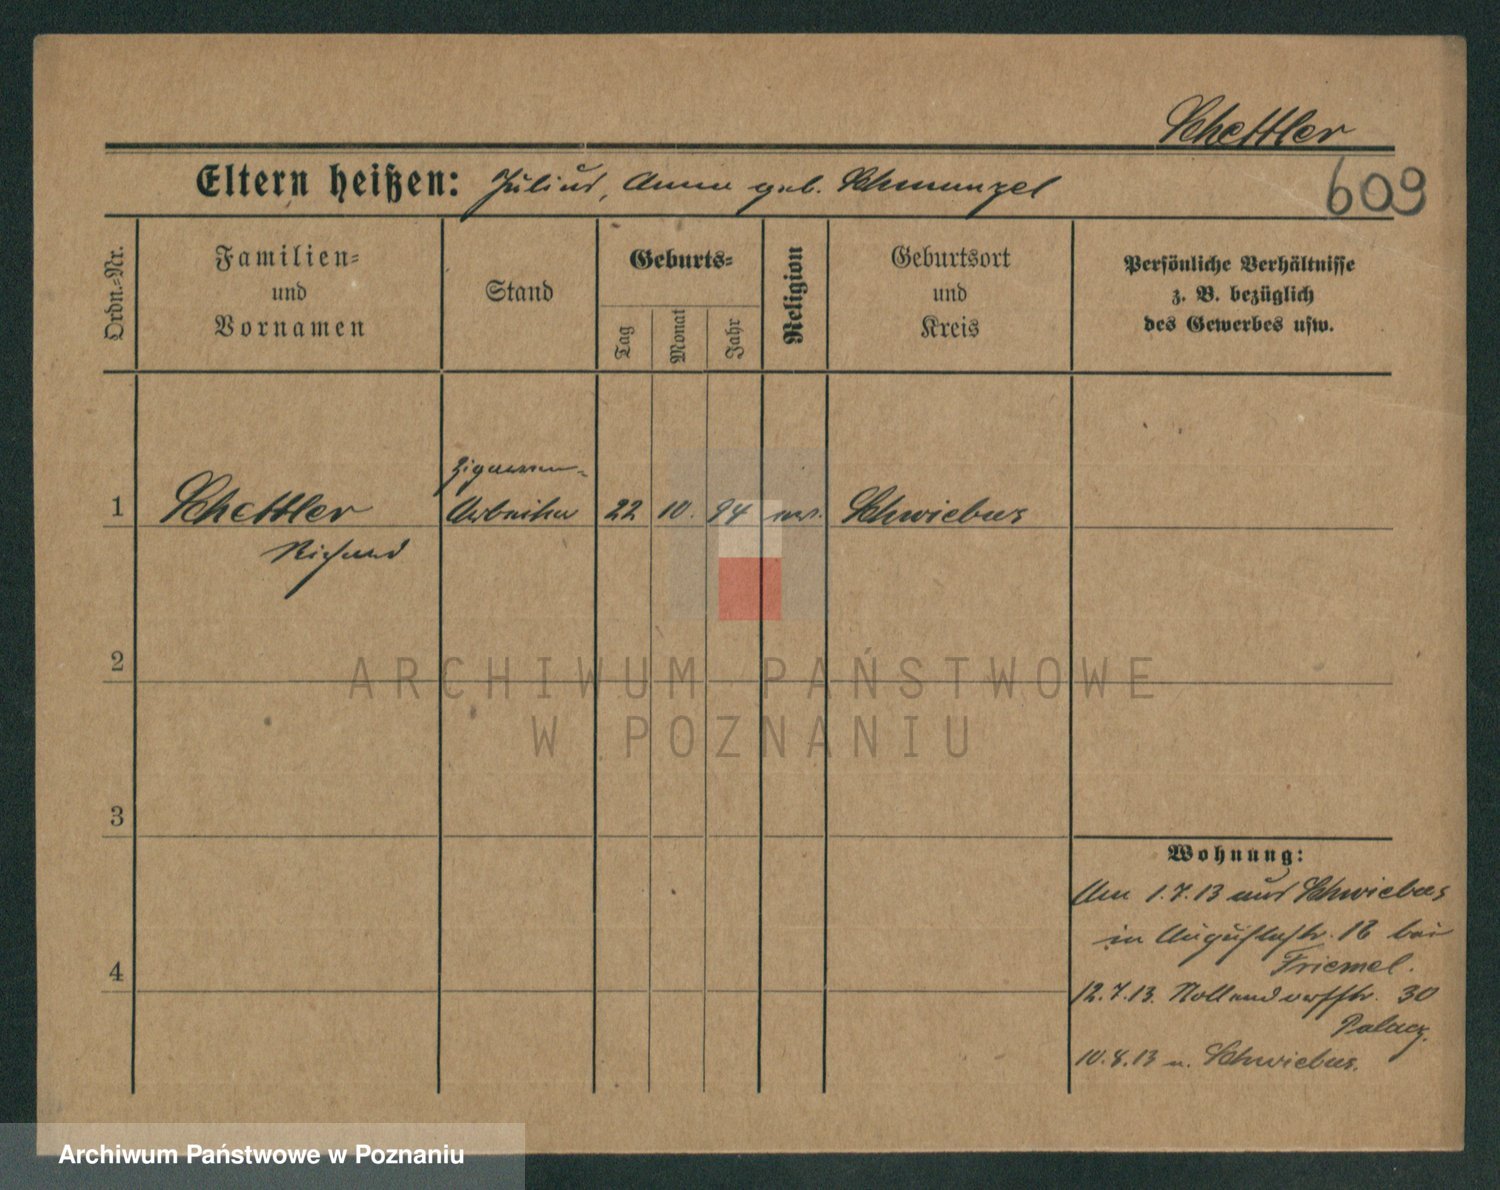 Schettler
Eltern heißen: Julius, Anna geb. Schmunzel
609
Ordn.-Nr.
Familien-
und
Vornamen
Stand
Geburts-
Tag
Monat
Jahr
Religion
Geburtsort
und
Kreis
Persönliche Verhältnisse
z. B. bezüglich
des Gewerbes usw.
Zigarren-
1 Schettler Arbeiter 22 10. 94 Schwiebus
Richard
2
3
4
ARCHIWUM PAŃSTWOWE
W POZNANIU
Wohnung:
Am 1.7.13 aus Schwiebus
in Augustastr. 16 bei
Friemel.
12.7.13. Nollendorfstr. 30
Palacz.
10.8.13 n. Schwiebus.
Archiwum Państwowe w Poznaniu